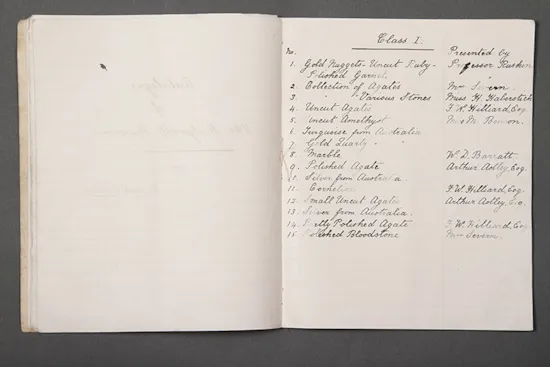 Class I.
No. Presented by
1. Gold Nuggets - Uncut Ruby - Professor Ruskin
Polished Garnet.
2. Collection of Agates Mrs Severn.
3. " Various Stones Miss H.
4. Uncut Agates F. W. Hilliard, Esq
5. Uncut Amethyst Miss M.
6. Turquoise from Australia
7. Gold Quartz "
8. Marble W. D. Barratt.
9. Polished Agate Arthur Astley, Esq.
10. Silver from Australia
11. Cornelian F. W. Hilliard, Esq
12. Small Uncut Agates Arthur Astley, Esq.
13. Silver from Australia.
14. Pretty Polished Agate F. W. Hilliard, Esq
15. Polished Bloodstone Mrs Severn.